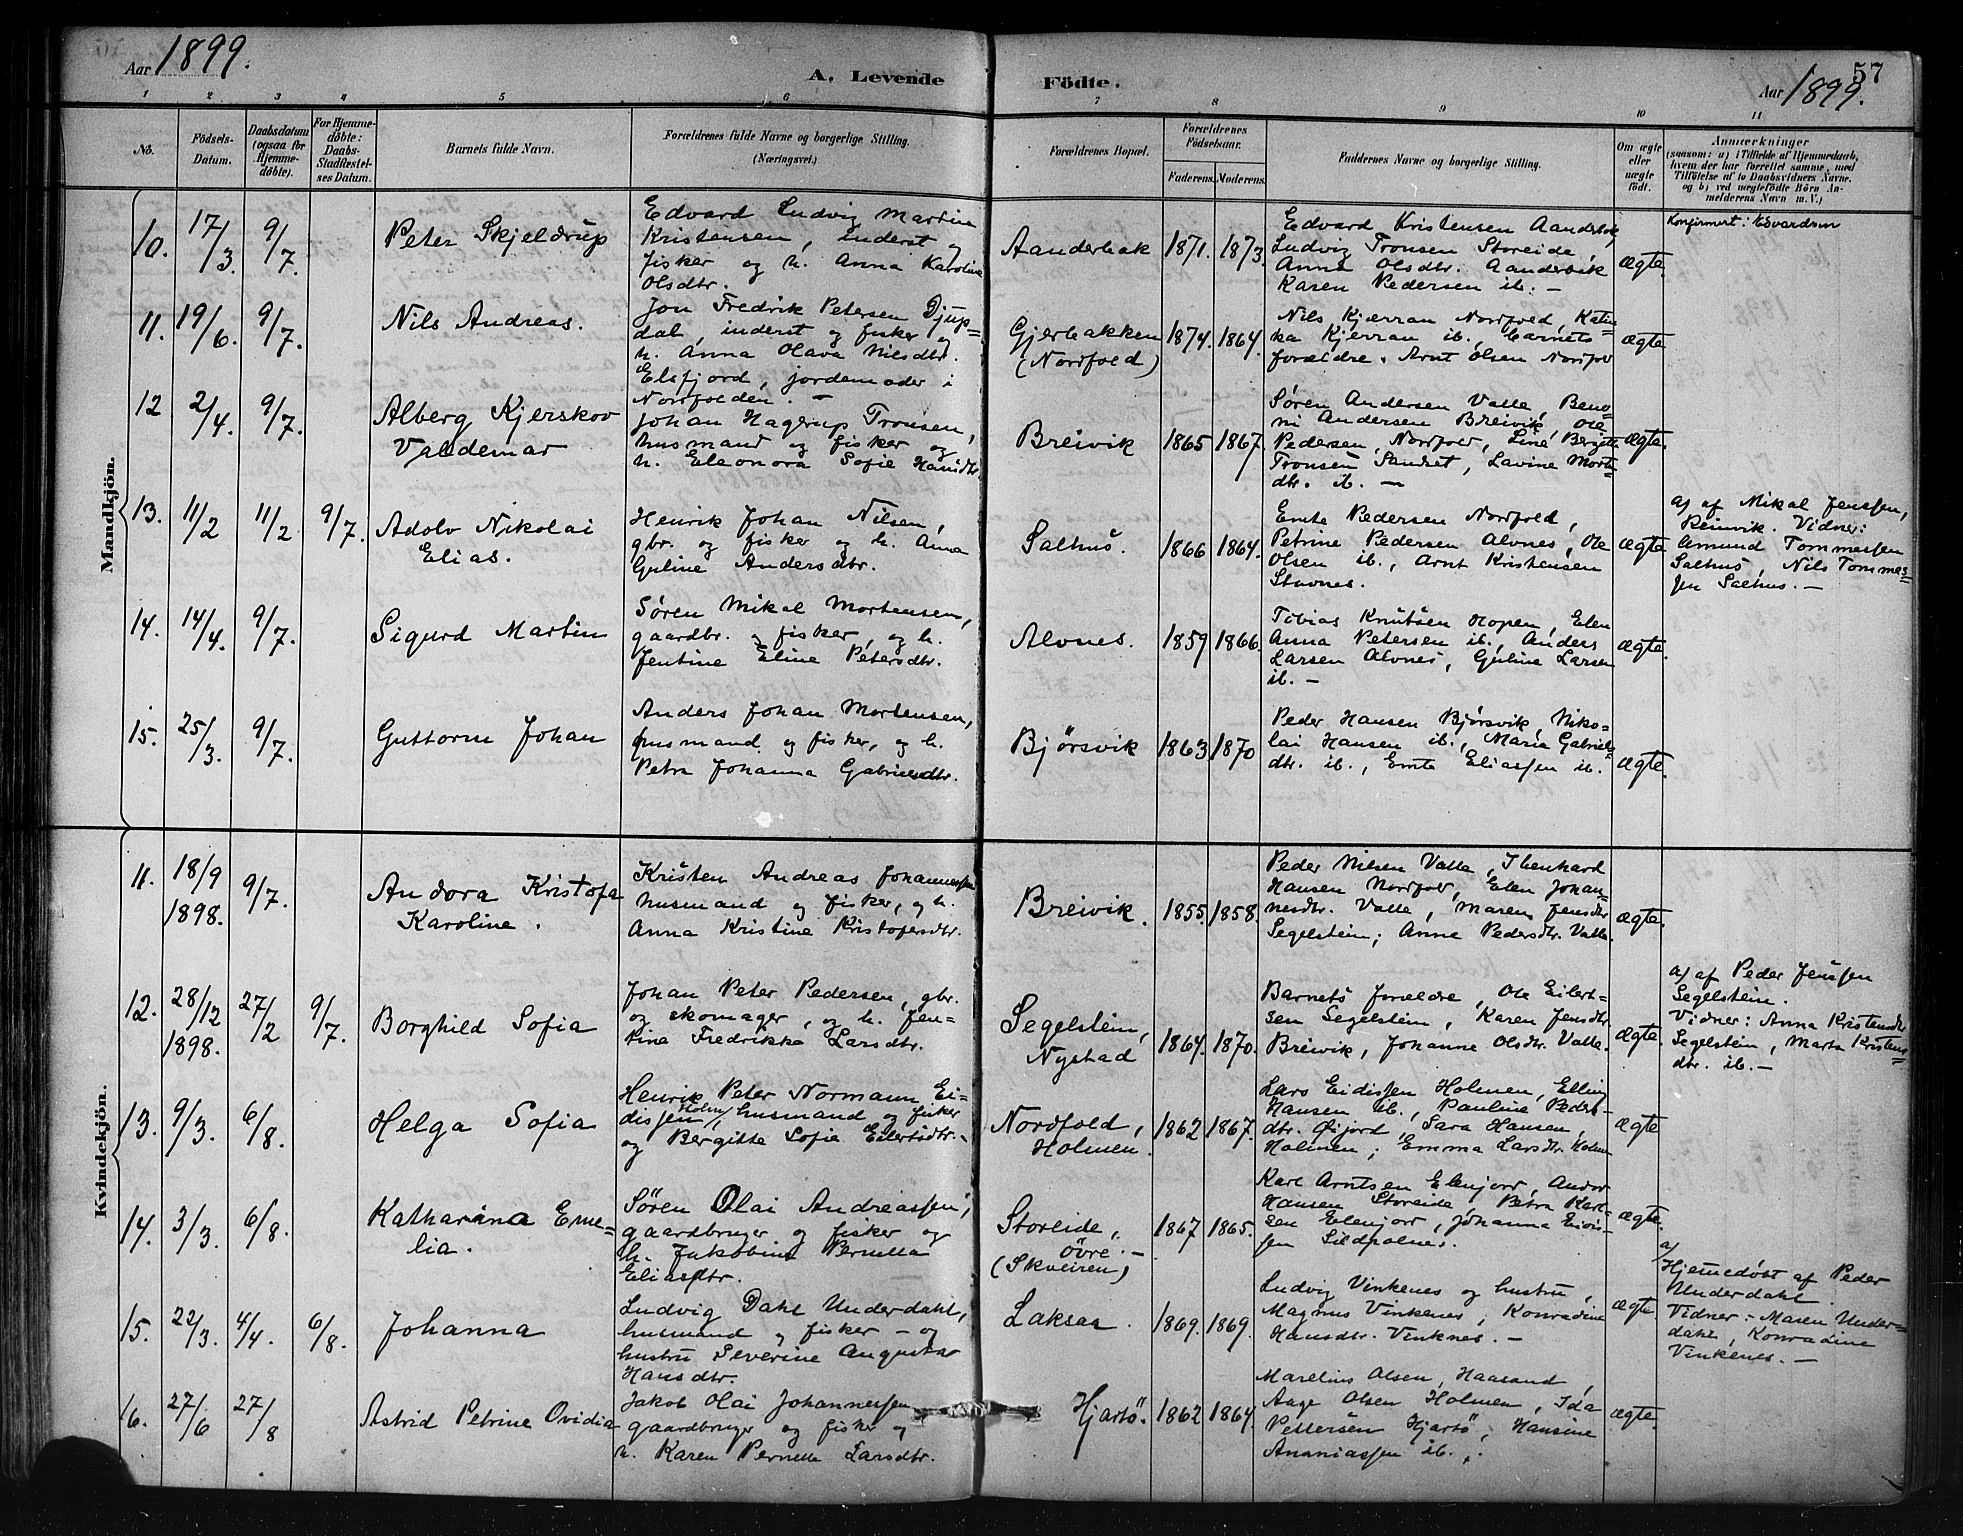 Aar 1899.
A. Levende Födte.
57
Aar 1899.
1 2 3 4 5 6 7 8 9 10 11
No.
Födsels-Datum.
Daabsdatum (ogsaa for Hjemme-döbte).
For Hjemme-döbte: Daabs-Stadfæstel-ses Datum.
Barnets fulde Navn.
Forældrenes fulde Navne og borgerlige Stilling.
(Næringsvei.)
Forældrenes Bopæl.
Forældrenes Födselsaar.
Faderens. Moderens.
Faddernes Navne og borgerlige Stilling.
Om ægte eller uægte födt.
Anmærkninger
(saasom: a) i Tilfælde af Hjemmedaab, hvem der har forrettet samme, med Tilföielse af to Daabsvidners Navne, og b) ved uægtefödte Börn An-melderens Navn m. V.)
Mandkjön.
10. 17/3. 9/7.
Peter Skjeldrup
Edvard Ludvig Martin
Kristensen, inderst og
fisker og h. Anna Karoline
Olsdtr.
Aanderbak
1871. 1873.
Edvard Kristensen Aanderbak
Ludvig Tronsen Storeide,
Anna Olsdtr. Aanderbak
Karen Pedersen ib. –
ægte.
Konfirmert: Edvardsen
11. 19/6. 9/7.
Nils Andreas.
Jon Fredrik Petersen Djup=
dal, inderst og fisker og
h. Anna Olava Nilsdtr.
Elsfjord, jordemoder i
Nordfolden. –
Gjerbakken
(Nordfold)
1874. 1864.
Nils Kjerran Nordfold, Katin=
ka Kjerran ib., barnets
forældre. Arnt Olsen Nordfold
ægte
12 2/4. 9/7.
Alberg Kjerskov
Valdemar
Johan Hagerup Tronsen,
husmand og fisker og
h. Eleonora Sofie Hansdtr.
Breivik
1865 1867.
Søren Andersen Valle, Beno=
ni Andersen Breivik, Ole
Pedersen, Nordfold, Line Bergitte
Tronsen Sandset, Lavine Morte=
dtr. ib. –
ægte.
13. 11/2 11/2 9/7.
Adolv Nikolai
Elias.
Henrik Johan Nilsen,
gbr. og fisker og h. Anna
Guline Andersdtr.
Salhus.
1866 1864.
Emte Pedersen Nordfold,
Petrine Pedersen Alvnes, Ole
Olsen ib., Arnt Kristensen
Stavnes.
ægte
a) af Mikal Jenssen,
Reinvik. Vidner:
Amund Tommessen
Salhus, Nils Tommes=
sen Salhus. –
14. 14/4. 9/7.
Sigurd Martin
Søren Mikal Mortensen,
gaardbr. og fisker, og h.
Jentine Eline Petersdtr.
Alvnes.
1859 1866.
Tobias Knutsen Hopen, Elen
Anna Petersen ib., Anders
Larsen Alvnes, Guline Larsen
ib. –
ægte.
15. 25/3. 9/7.
Guttorm Johan
Anders Johan Mortensen,
husmand og fisker, og h.
Petra Johanna Gabrielsdtr.
Bjørsvik
1863 1870
Peder Hansen Bjørsvik, Niko=
lai Hansen ib., Maria Gabriels=
dtr. ib., Emte Eliassen ib.
ægte.
Kvindekjön.
11. 18/9 1898. 9/7.
Andora Kristofa
Karoline.
Kristen Andreas Johannessen
husmand og fisker, og h.
Anna Kristine Kristofersdtr.
Breivik.
1855. 1858.
Peder Nilsen Valle, Ibenhard
Hansen Nordfold, Elen Johan=
nesdtr. Valle, Maren Jensdtr
Segelstein; Anne Pedersdtr. Valle.
ægte.
12. 28/12 1898. 27/2 9/7.
Borghild Sofia
Johan Peter Pedersen, gbr.
og skomager, og h. Jen=
tine Fredrikke Larsdtr.
Segelstein,
Nystad
1864. 1870.
Barnets forældre, Ole Eilert=
sen Segelstein, Karen Jensdtr
Breivik, Johanne Olsdtr. Valle.
ægte.
a) af Peder Jenssen
Segelstein.
Vidner: Anna Kristensdtr
Segelstein, Marta Kristens=
dtr. ib. –
13. 9/3. 6/8.
Helga Sofia
Henrik Peter Normann Ei=
dissen Holm, husmand og fisker
og Bergitte Sofie Eilertsdtr. –
Nordfold,
Holmen.
1862 1867.
Lars Eidissen Holmen, Elling
Hansen ib., Pauline Peders=
dtr. Øijord, Sara Hansen,
Holmen; Emma Larsdtr. Holmen
ægte
14. 3/3. 6/8.
Katharina Eme=
lia.
Søren Olai Andreassen,
gaardbruger og fisker og
h. Jakobine Pernella
Eliasdtr.
Storeide,
øvre. –
(Skveiren)
1867 1865.
Karl Arntsen Elenjord, Andor
Hansen Storeide, Petra Karl=
sen Elenjord, Johanna Eidis=
sen Sildpolnes.
ægte.
15. 22/3. 4/4. 6/8.
Johanna
Ludvig Dahl Underdahl,
husmand og fisker – og
hustru Severine Augusta
Hansdtr.
Laksaa.
1869. 1869.
Ludvig Vinkenes og hustru,
Magnus Vinkenes, Konradine
Hansdtr. Vinknes. –
ægte.
a) Hjemedøbt af Peder
Underdahl.
Vidner: Maren Under=
dahl, Konradine
Vinkenes. –
16. 27/6 27/8
Astrid Petrine Ovidia
Jakob Olai Johannessen
gaardbruger og fisker og
h. Karen Pernelle Larsdtr.
Hjartø.
1862 1864.
Marelius Olsen, Haasand,
Aage Olsen Holmen, Ida
Pettersen Hjartø, Hansine
Ananiassen ib.,
ægte.